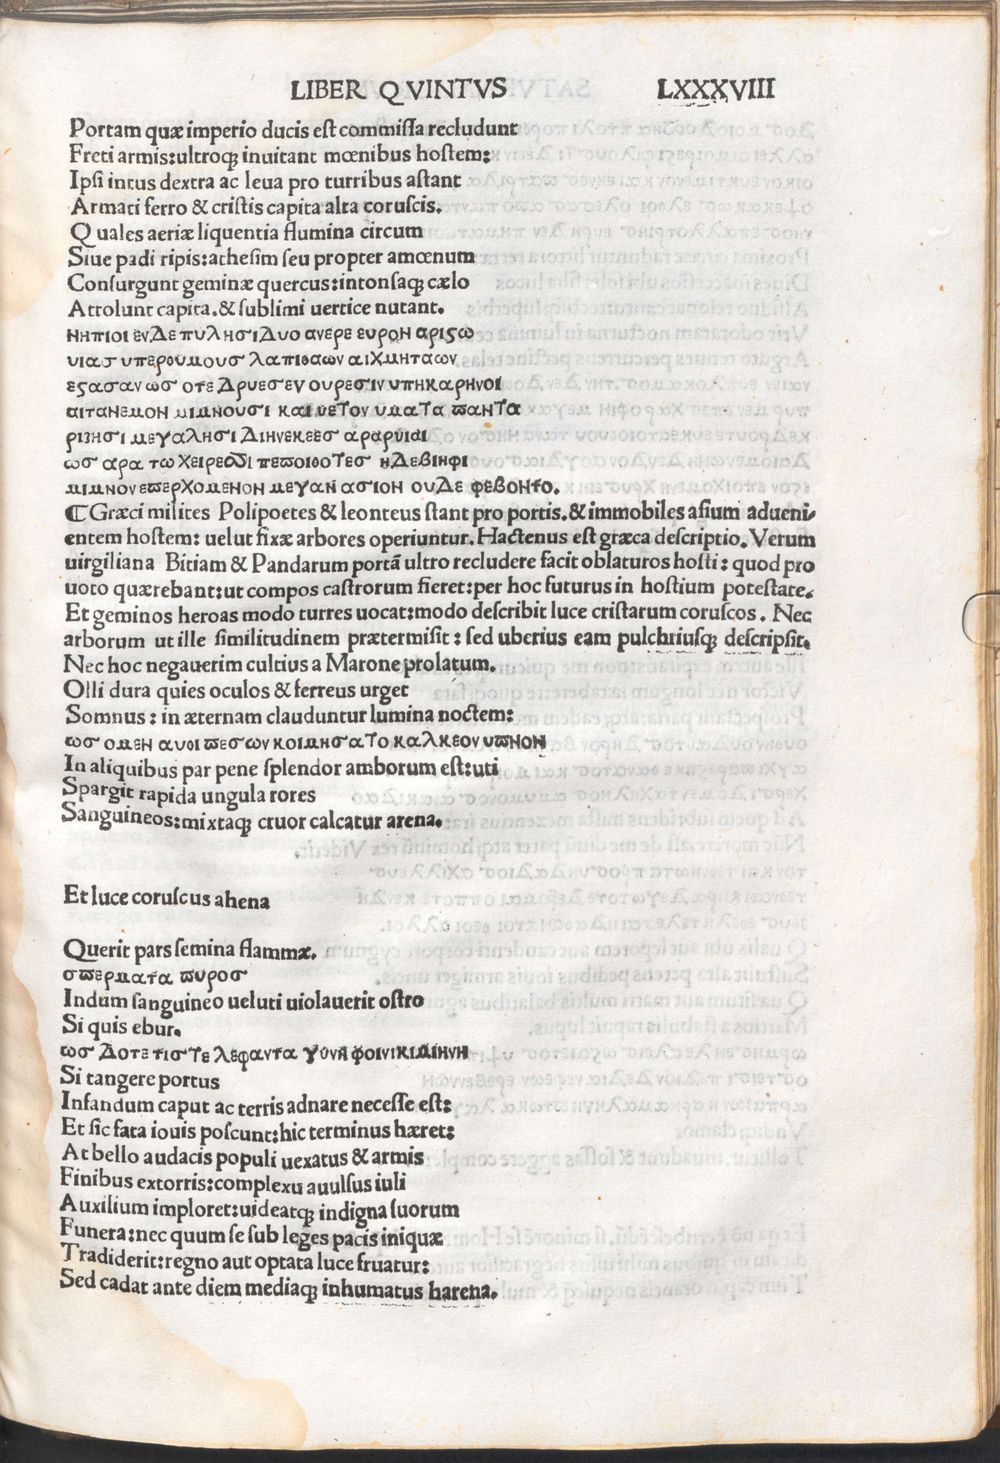 LIBER QVINTVS LXXXVIII
Portam quæ imperio ducis est commissa recludunt
Freti armis: ultroqꝫ inuitant mœnibus hostem:
Ipsi intus dextra ac leua pro turribus astant
Armati ferro & cristis capita alta coruscis.
Quales aeriæ liquentia flumina circum
Siue padi ripis: athesim seu propter amœnum
Consurgunt geminæ quercus: intonsaqꝫ cælo
Attolunt capita. & sublimi uertice nutant.
νηπιοι εν δε πυλησι δυο ανερε ευρον αριϛω
υιας υπερθυμους λαπιθαων αιχμηταων
εϛασαν ως οτε δρυες εν ουρεσιν υπηκαρηνοι
αιτανεμον μιμνουσι και υετον υματα παντα
ριζησι μεγαλησι διηνεκεες αραρυιαι
ως αρα τω χειρεσσι πεποιθοτες ηδε βιηφι
μιμνον επερχομενον μεγαν ασιον ουδε φεβοντο.
⁋ Græci milites Polipoetes & leonteus stant pro portis. & immobiles asium adueni-
entem hostem: uelut fixæ arbores operiuntur. Hactenus est græca descriptio. Verum
uirgiliana Bitiam & Pandarum portā ultro recludere facit oblaturos hosti: quod pro
uoto quærebant: ut compos castrorum fieret: per hoc futurus in hostium potestate.
Et geminos heroas modo turres uocat: modo describit luce cristarum coruscos. Nec
arborum ut ille similitudinem prætermisit: sed uberius eam pulchriusqꝫ descripsit.
Nec hoc negauerim cultius a Marone prolatum.
Olli dura quies oculos & ferreus urget
Somnus: in æternam clauduntur lumina noctem:
ως ομεν αυθι πεσων κοιμησατο καλκεον υπνον
In aliquibus par pene splendor amborum est: uti
Spargit rapida ungula rores
Sanguineos: mixtaqꝫ cruor calcatur arena.
Et luce coruscus ahena
Querit pars semina flammæ.
σπερματα πυρος
Indum sanguineo ueluti uiolauerit ostro
Si quis ebur.
ως δοτε τις τε λεφαντα γυνη φοινικι μιηνη
Si tangere portus
Infandum caput ac terris adnare necesse est:
Et sic fata iouis poscunt: hic terminus hæret:
At bello audacis populi uexatus & armis
Finibus extorris: complexu auulsus iuli
Auxilium imploret: uideatqꝫ indigna suorum
Funera: nec quum se sub leges pacis iniquæ
Tradiderit: regno aut optata luce fruatur:
Sed cadat ante diem mediaqꝫ inhumatus harena.